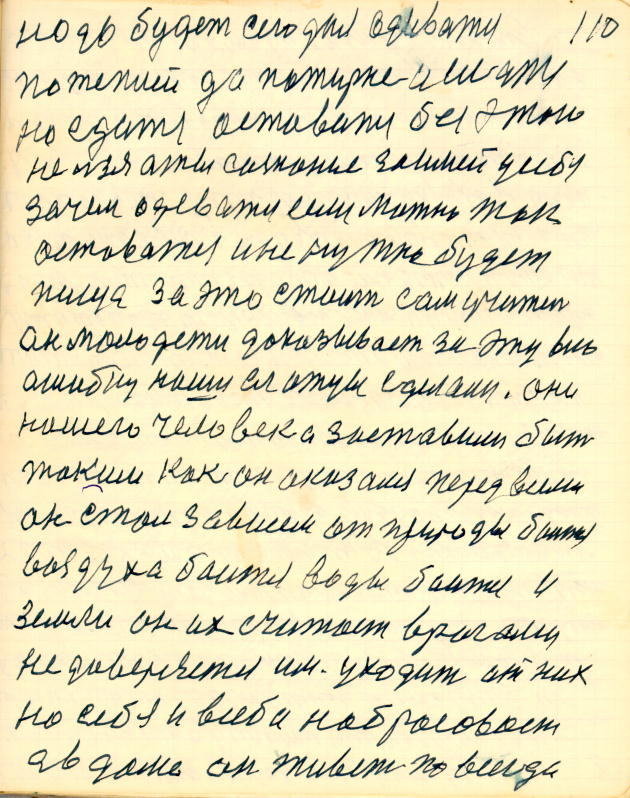 надь будет сегодня одевати 110
потеплей да потирне
но сдатя оставатя без этого
нельзя ати сазнание займей усебя
зачем одевати если можно так
оставатея и не нужно будет
пища за это стоит сам учител
он молодети доказывает за эту вью
ошибку наши сделали. они
нашего человека заставили быт
таким как он оказался перед всими
он стал зависем от природы боится
воздуха боится воды боится и
земли он их считает врагами
недоверяетея им. уходит от них
на себя и всебя набрасовает
а в доме он живет по всегда